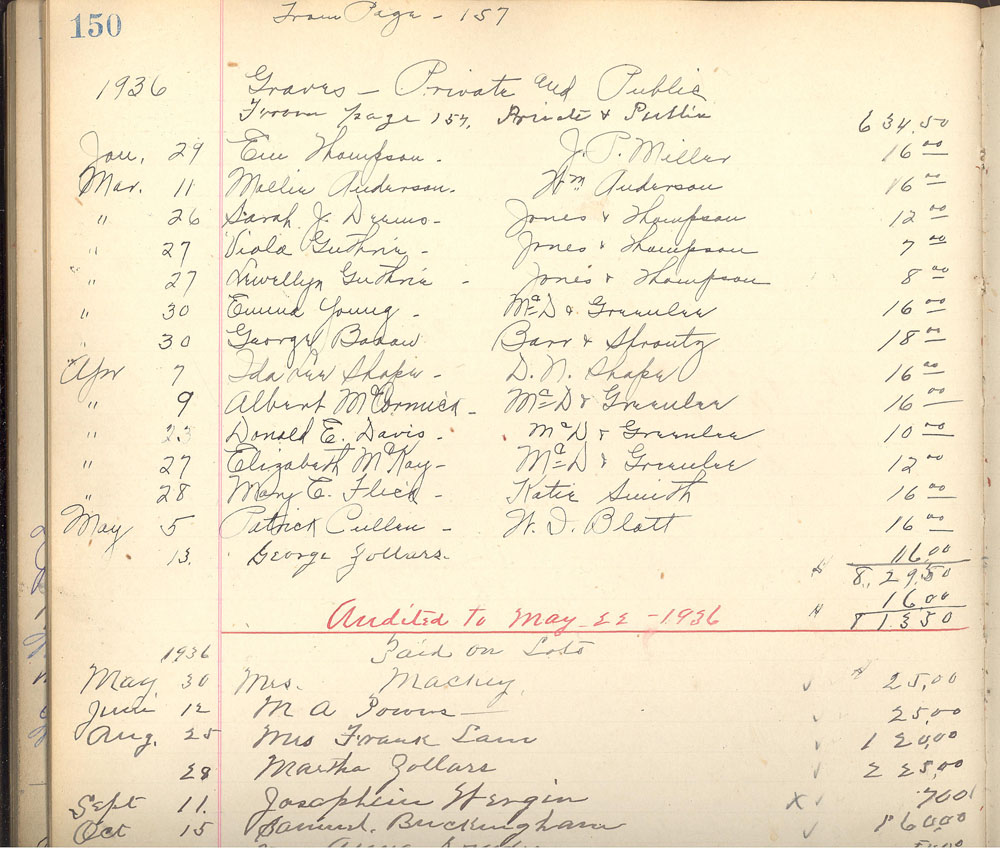 150 From Page - 157
1936 Graves - Private and Public
From page 157. Private & Public 634.50
Jan. 29 Em Thompson - J. P. Miller 16 00
Mar. 11 Mollie Anderson - Wm Anderson 16 00
" 26 Sarah J. Deems - Jones & Thompson 12 00
" 27 Viola Guthrie - Jones & Thompson 7 00
" 27 Lewellyn Guthrie - Jones & Thompson 8 00
" 30 Emma Young - McD & Greenlee 16 00
" 30 George Barr & 18 00
Apr 7 Ida Lee Shape - D. N. Shape 16 00
" 9 Albert McCormick - McD & Greenlee 16 00
" 23 Donald E. Davis - McD & Greenlee 10 00
" 27 Elizabeth McKay - McD & Greenlee 12 00
" 28 Mary E. Flick - Katie Smith 16 00
May 5 Patrick Cullen - W. D. Blatt 16 00
13. George Zollars - 16.00
829.50
16.00
813.50
Audited to May 22 - 1936
1936 Paid on Lots
May 30 Mrs. Mackey 25.00
June 12 M A Powns 25.00
Aug. 25 Mrs Frank Lam 120.00
28 Martha Zollars 225.00
Sept 11. Josephin Wergin x 700
Oct 15 Samuel. Buckingham 160.00